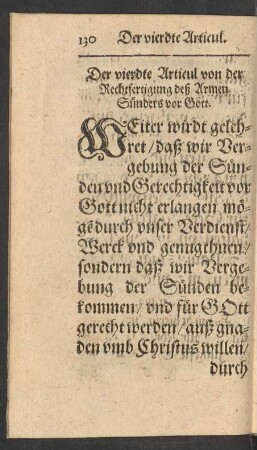 130 Der vierdte Articul.
Der vierdte Articul von der
Rechtfertigung deß Armen
Sünders vor Gott.
WEiter wirdt geleh-
ret / daß wir Ver-
gebung der Sün-
den vnd Gerechtigkeit vor
Gott nicht erlangen mö-
gẽ durch vnser Verdienst /
Werck vnd genugthuen /
sondern daß wir Verge-
bung der Sünden be-
kommen / vnd für GOtt
gerecht werden / auß gna-
den vmb Christus willen /
durch